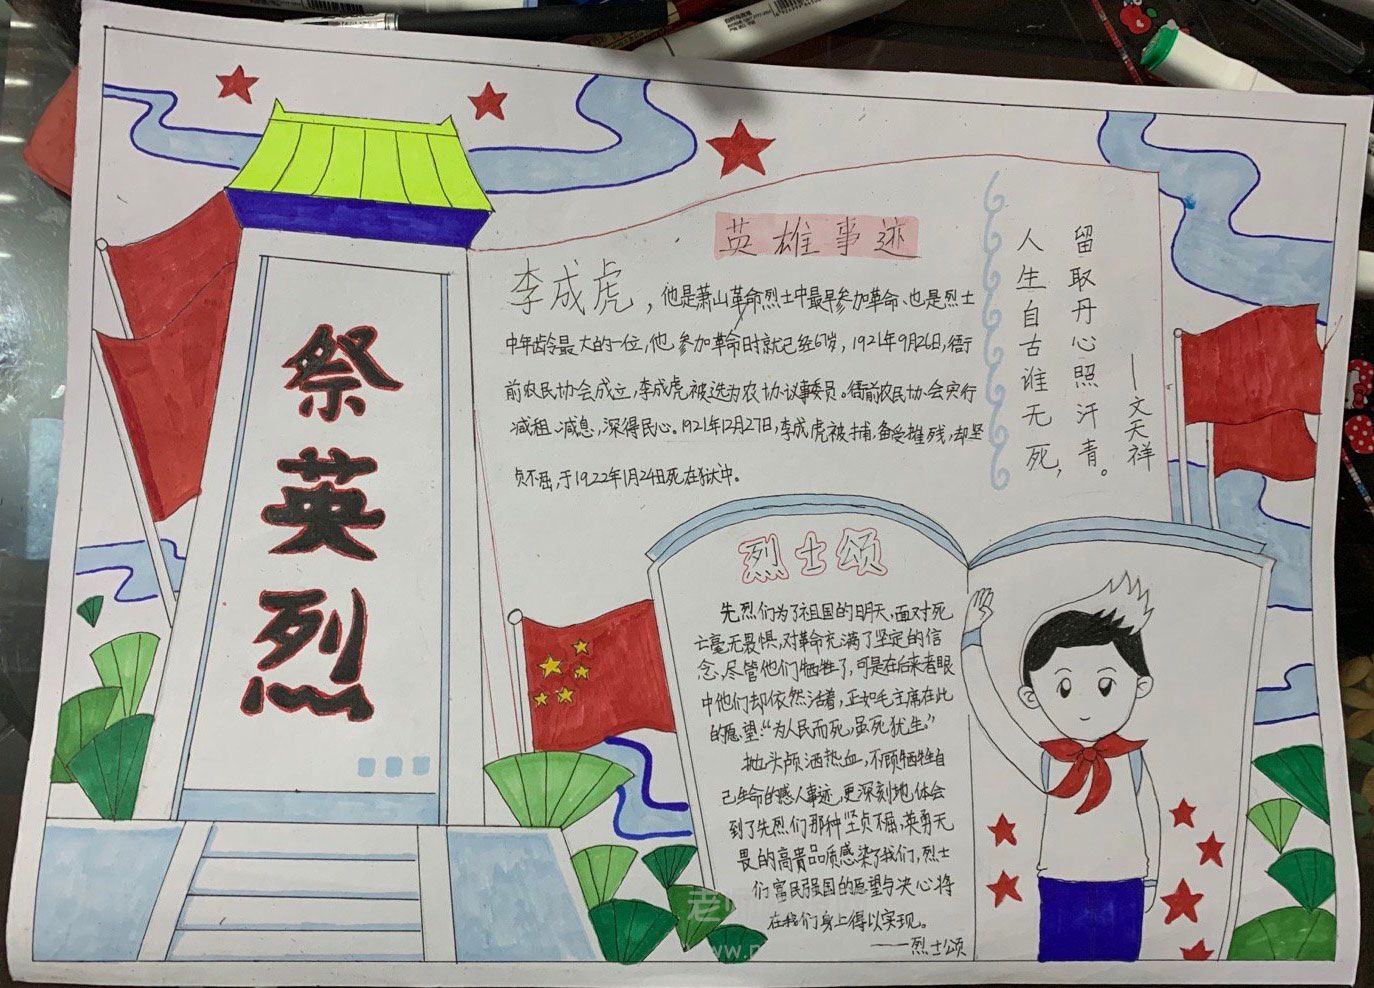 祭英烈
英雄事迹
李成虎，他是萧山革命烈士中最早参加革命、也是烈士
中年龄最大的一位，他参加革命时就已经67岁，1921年9月26日，衙
前农民协会成立，李成虎被选为农协议事委员。衙前农民协会实行
减租、减息，深得民心。1921年12月27日，李成虎被捕，备受摧残，却坚
贞不屈，于1922年1月24日死在狱中。
人生自古谁无死，
留取丹心照汗青。
——文天祥
烈士颂
先烈们为了祖国的明天，面对死
亡毫无畏惧，对革命充满了坚定的信
念，尽管他们牺牲了，可是在后来者眼
中他们却依然活着，正如毛主席在此
的愿望：“为人民而死，虽死犹生。”
抛头颅洒热血，不顾牺牲自
己生命的感人事迹，更深刻地体会
到了先烈们那种坚贞不屈，英勇无
畏的高贵品质感染了我们，烈士
们富民强国的愿望与决心将
在我们身上得以实现。
——烈士颂